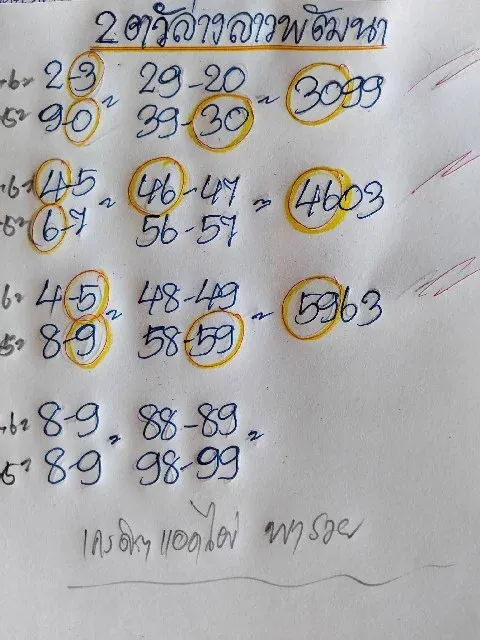 2 ตัวล่างลาวพัฒนา
+6= 2-3 = 29-20 = 3099
+5= 9-0 39-30
+6= 4-5 = 46-47 = 4603
+5= 6-7 56-57
6= 4-5 = 48-49 = 5963
5= 8-9 58-59
+6= 8-9 = 88-89 =
5= 8-9 98-99
แอดไลน์ พารวย